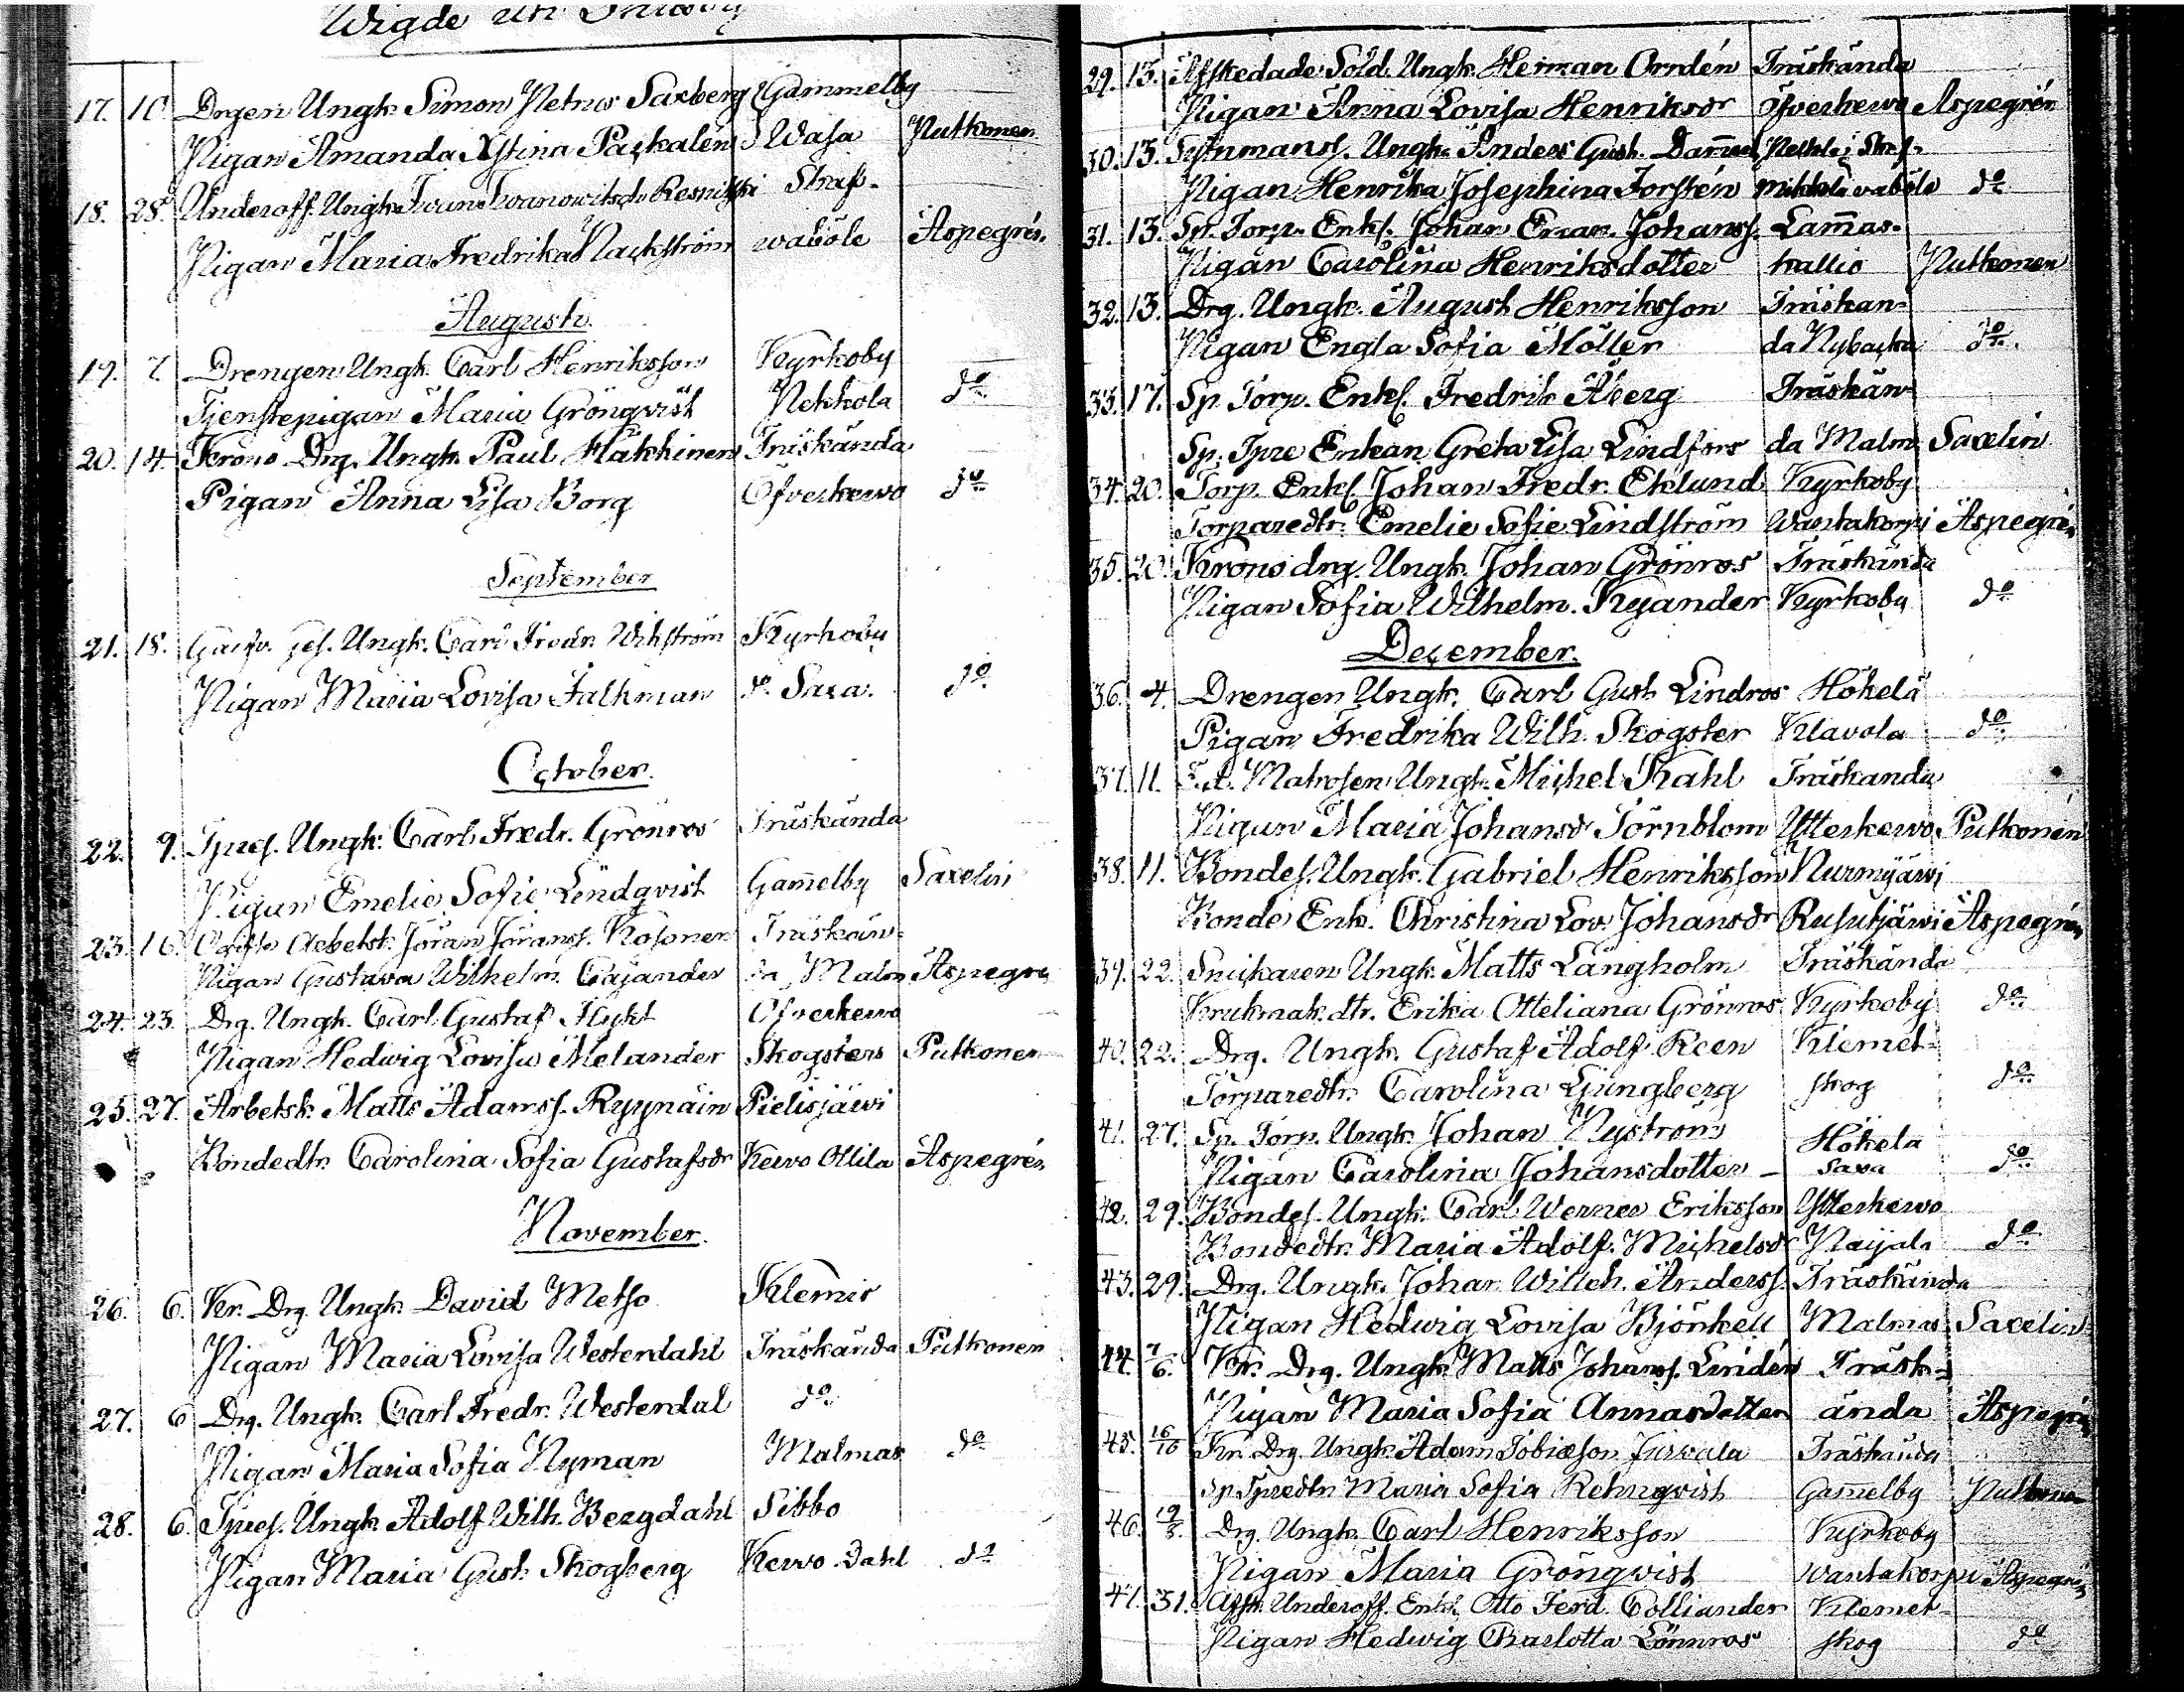 Wigde uti
17. 10. Drgen Ungk. Simon Petrus Saxberg Gammelby
Pigan Amanda Xstina Paskalén Wasa Putkonen
18. 28. Underoff. Ungk. Iwan Iwanowitsch Straf-
Pigan Maria Fredrika Packström waböle Aspegrén.
Augusti.
19. 7. Drengen Ungk. Carl Henriksson Kyrkoby
Tjenstepigan Maria Grönqvist Pekkola do
20. 14. Krono Drg. Ungk. Paul Häkkinen Träskända
Pigan Anna Lisa Borg Öfverkervo do
September
21. 18. Garfv. Ges. Ungk. Carl Fredr. Wikström Kyrkoby
Pigan Maria Lovisa Falkman Saxa. do
October.
22. 9. Tpres. Ungk. Carl Fredr. Grönros Träskända
Pigan Emelie Sofie Lindqvist Gam̅elby Saxelin
23. 16. Arbetsk. Jöran Jöranss. Kosonen Träskän-
Pigan Gustava Wilhelm. Cajander da Malm Aspegrén
24. 23. Drg. Ungk. Carl Gustaf Flykt Öfverkervo
Pigan Hedwig Lovisa Melander Skogsters Putkonen
25. 27. Arbetsk. Matts Adamss. Ryynäin Pielisjärvi
Bondedtr. Carolina Sofia Gustafsdr Kervo Ollila Aspegrén
November.
26. 6. Kr. Drg. Ungk. David Metso Klemis
Pigan Maria Lovisa Westerdahl Träskända Putkonen
27. 6 Drg. Ungk. Carl Fredr. Westerdal do
Pigan Maria Sofia Nyman Malmas do
28. 6. Tpres. Ungk. Adolf Wilh. Bergdahl Sibbo
Pigan Maria Gust. Skogberg Kervo Dahl do
29. 13. Afskedade Sold. Ungk. Herman Orndén Träskända
Pigan Anna Lovisa Henriksdr Öfverkervo Aspegrén
30. 13. Ungk. Anders Gust. Pekkola; Straf-
Pigan Henrika Josephina Forstén Mikkola waböle do
31. 13. Sp. Torp. Enkl. Johan Johanss. Lam̅as-
Pigan Carolina Henriksdotter kallio Putkonen
32. 13. Drg. Ungk. August Henriksson Träskän-
Pigan Engla Sofia Möller da Nybacka do.
33. 17. Sp. Torp. Enkl. Fredrik Åberg Träskän-
Sp. Tpre Enkan Greta Lisa Lindfors da Malm Saxelin
34. 20. Torp. Enkl. Johan Fredr. Eklund Kyrkoby
Torparedtr. Emelie Sofie Lindström Wantakorpi Aspegrén
35. 20. Krono drg. Ungk. Johan Grönros Träskända
Pigan Sofia Wilhelm. Kyander Kyrkoby do
December.
36. 4. Drengen Ungk. Carl Gust. Lindros Hökelä
Pigan Fredrika Wilh. Skogster Klavola do
37. 11. Matrosen Ungk. Michel Stahl Träskända
Pigan Maria Johansdr Törnblom Ytterkervo Putkonen
38. 11. Bondes. Ungk. Gabriel Henriksson Nurmijärvi
Bonde Enk. Christina Lov. Johansdr Rusutjärvi Aspegrén
39. 22. Snickaren Ungk. Matts Långholm Träskända
Krukmak. dtr. Erika Otteliana Grönros Kyrkoby do
40. 22. Drg. Ungk. Gustaf Adolf Reen Klemet-
Torparedtr. Carolina Ljungberg skog do
41. 27. Sp. Torp. Ungk. Johan Nyström Hökelä
Pigan Carolina Johansdotter - Saxa do
42. 29. Bondes. Ungk. Carl Werner Eriksson Ytterkervo
Bondedtr. Maria Adolf. Michelsdr Paijala do
43. 29. Drg. Ungk. Johan Willeh. Anderss. Träskända
Pigan Hedwig Lovisa Björkell Malmas Saxelin
44. 7/6. Kr. Drg. Ungk. Matts Johanss. Lindén Träsk-
Pigan Maria Sofia Annasdotter ända Aspegrén
45. 16/10 Kr. Drg. Ungk. Adam Tobiasson Träskända
Sp. Tpredtr. Maria Sofia Rehnqvist Gam̅elby Putkonen
46. 19/3. Drg. Ungk. Carl Henriksson Kyrkoby
Pigan Maria Grönqvist Wantakorpi Aspegrén
47. 31. Afsk. Underoff. Enkl. Otto Ferd. Colliander Klemet-
Pigan Hedwig Charlotta Lönnros skog do